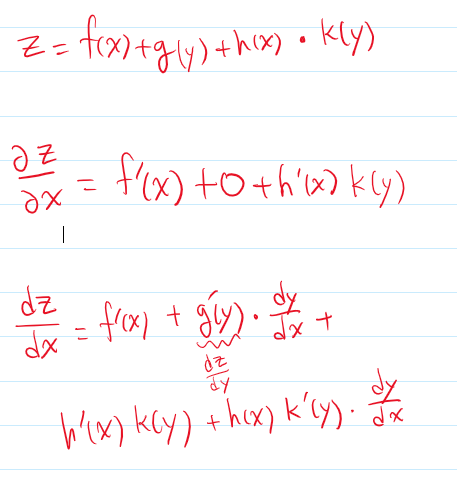 z = f(x) + g(y) + h(x) · k(y)
∂z/∂x = f'(x) + 0 + h'(x) k(y)
dz/dx = f'(x) + g'(y) · dy/dx +
dz/dy
h'(x) k(y) + h(x) k'(y) · dy/dx